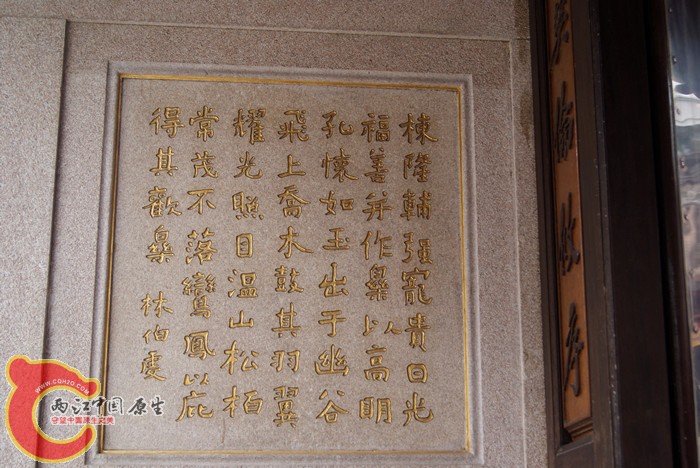 倫攸序
棟隆輔强寵貴日光
福善并作樂以高明
孔懷如玉出于幽谷
飛上喬木鼓其羽翼
耀光照目温山松柏
常茂不落鸞鳳以庇
得其歡樂 林伯虔
两江中国原生
守望中国原生之美